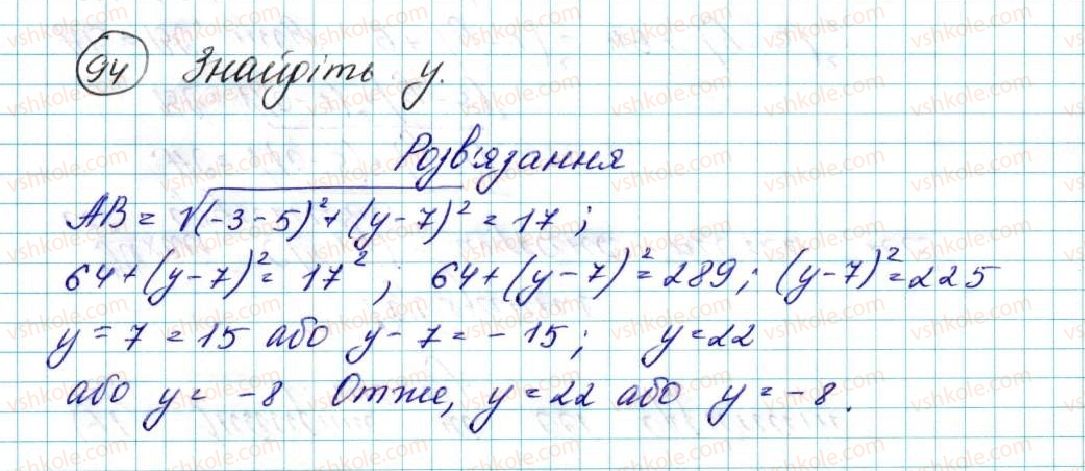 94 Знайдіть y.
Розв'язання
AB = √(-3-5)²+(y-7)² = 17;
64+(y-7)² = 17²; 64+(y-7)² = 289; (y-7)² = 225
y = 7 = 15 або y - 7 = - 15; y = 22
або y = -8 Отже, y = 22 або y = -8.